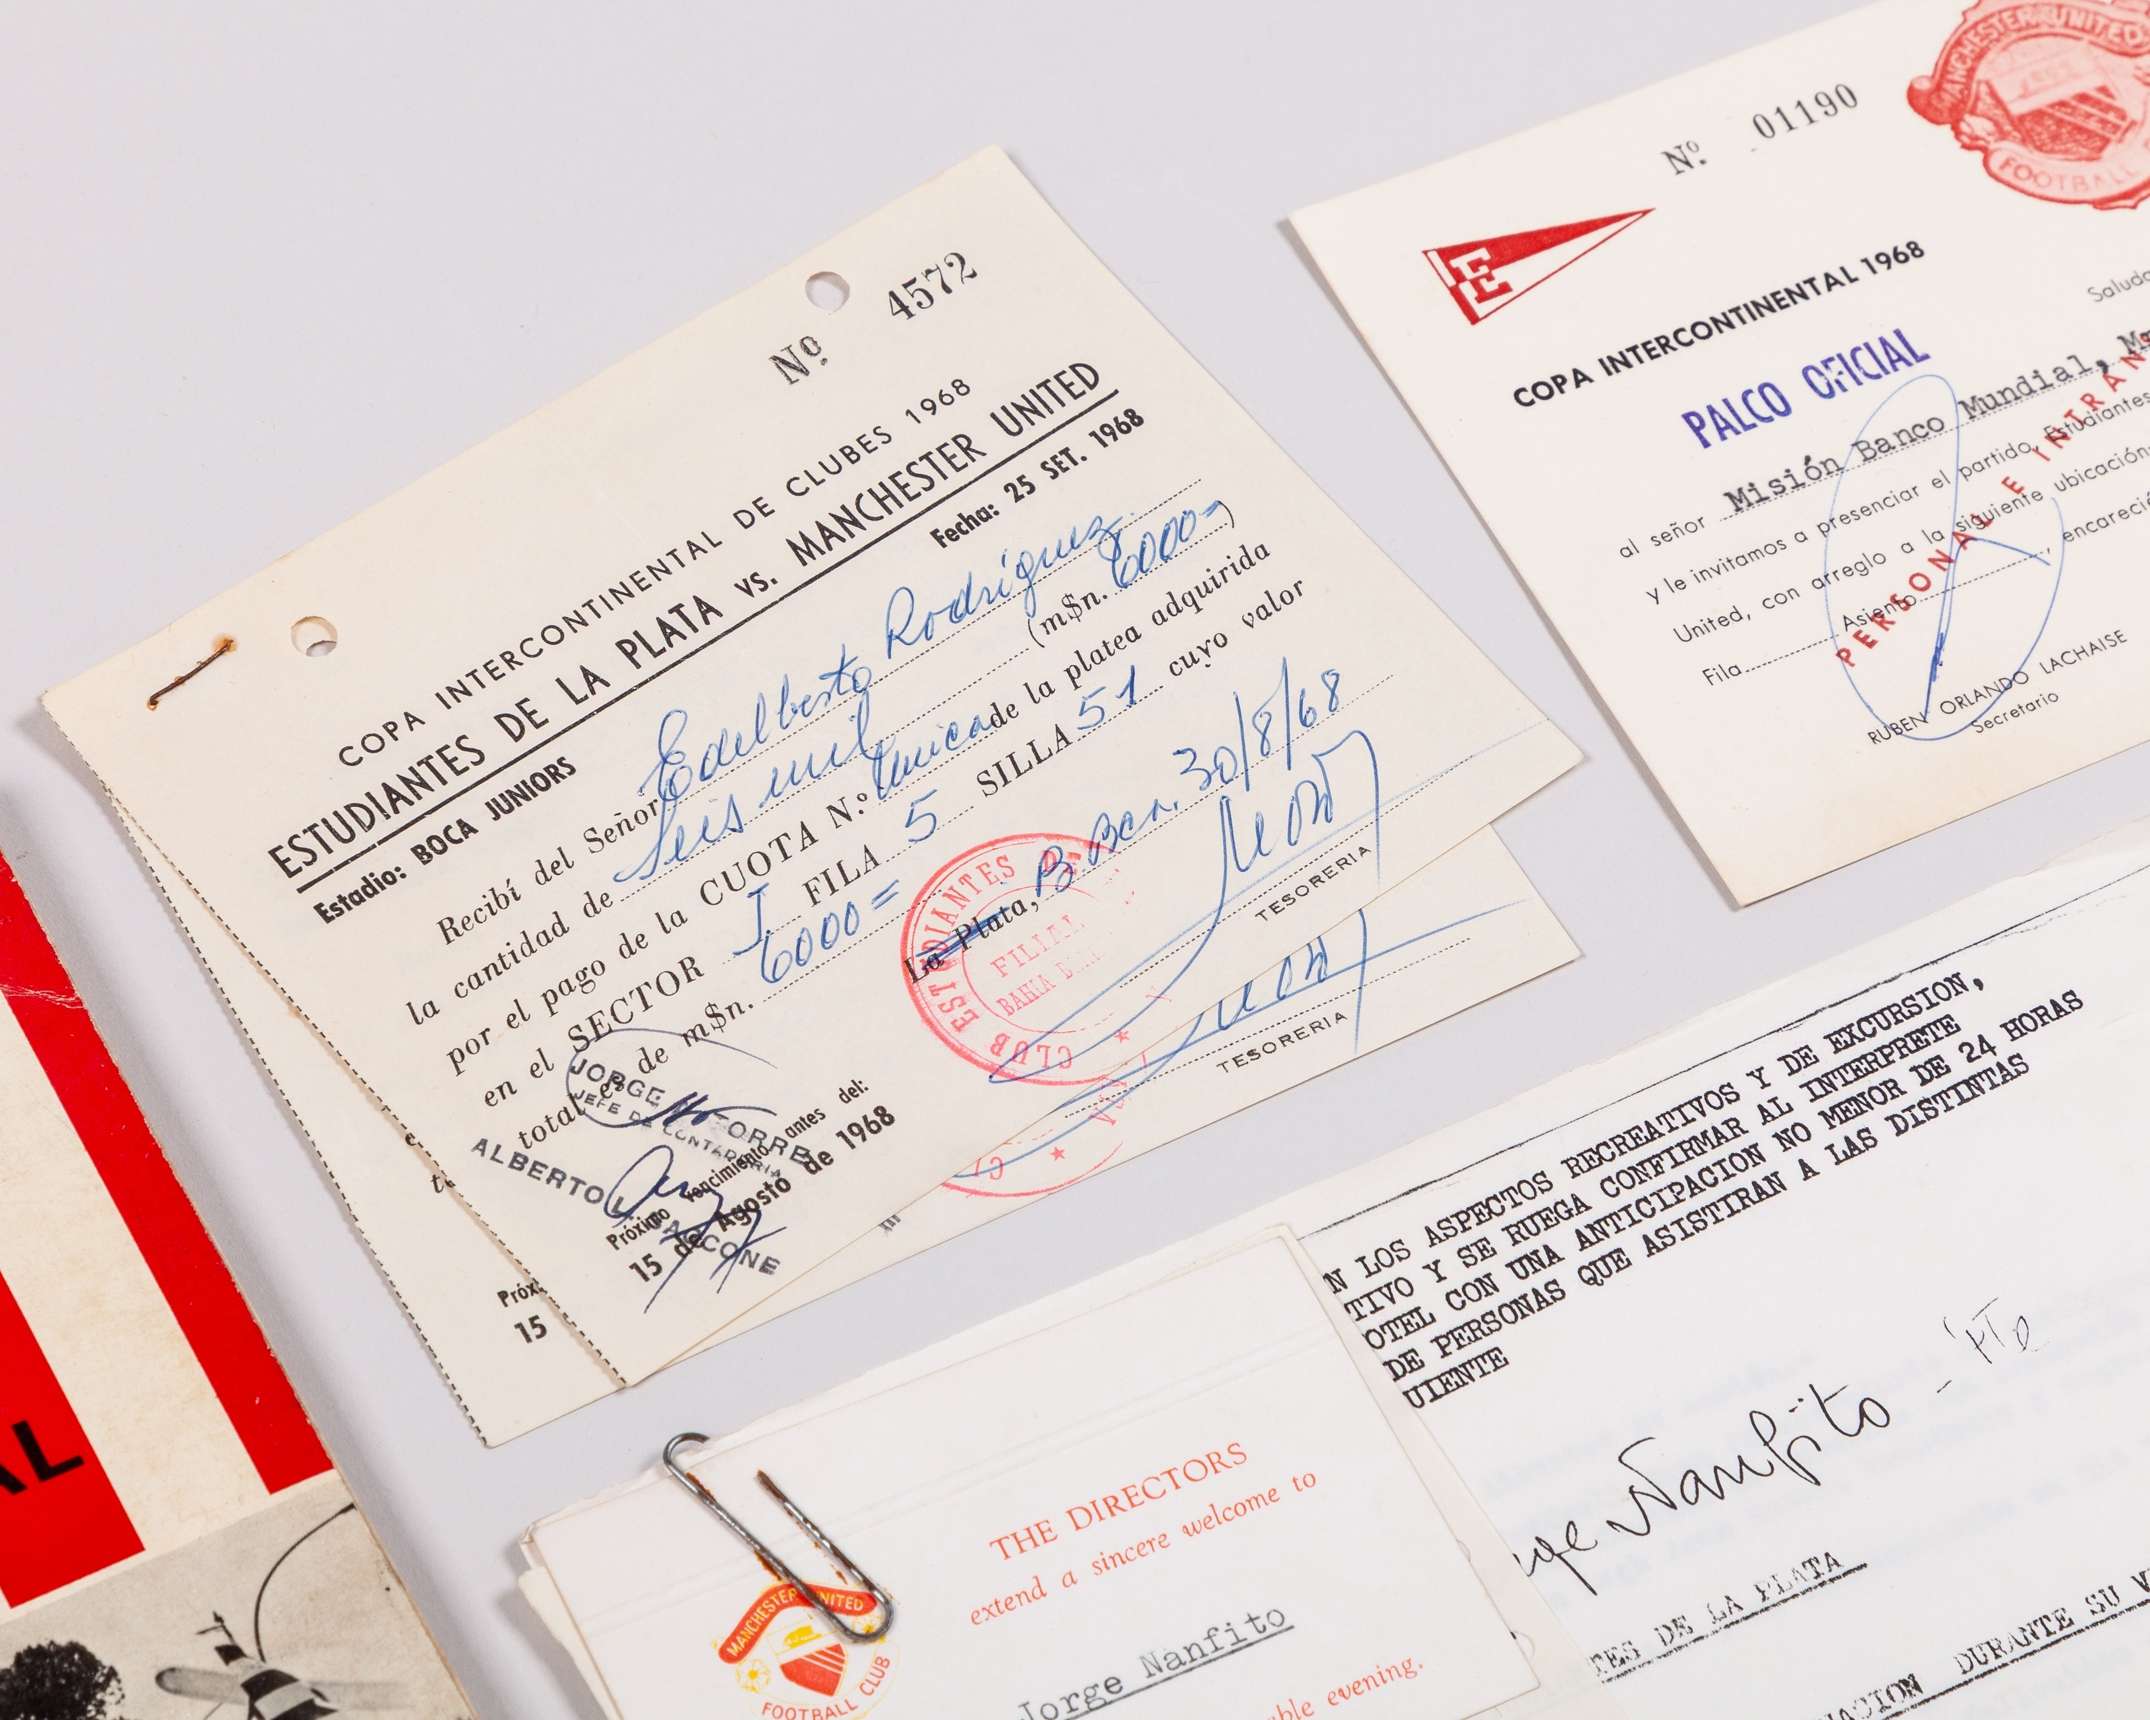 Nº 4572
COPA INTERCONTINENTAL DE CLUBES 1968
ESTUDIANTES DE LA PLATA vs. MANCHESTER UNITED
Estadio: BOCA JUNIORS Fecha: 25 SET. 1968
Recibí del Señor Edelberto Rodríguez
la cantidad de Seis mil (m$n. 6000=)
por el pago de la CUOTA N.º Unica de la platea adquirida
en el SECTOR I FILA 5 SILLA 51 cuyo valor
total es de m$n. 6000=
La Plata, B. Bca. 30/8/68
TESORERIA
CLUB ESTUDIANTES
FILIAL
BAHIA
JORGE TORRE
JEFE DE CONTADURIA
ALBERTO
Próximo vencimiento antes del:
15 de Agosto de 1968
TESORERIA
Próx
15
Nº 01190
MANCHESTER UNITED
FOOTBALL
E
COPA INTERCONTINENTAL 1968
PALCO OFICIAL
al señor Misión Banco Mundial,
y le invitamos a presenciar el partido, Estudiantes
United, con arreglo a la siguiente ubicación
Fila Asiento
PERSONAL E INTRAN
RUBEN ORLANDO LACHAISE
Secretario
N LOS ASPECTOS RECREATIVOS Y DE EXCURSION,
TIVO Y SE RUEGA CONFIRMAR AL INTERPRETE
OTEL CON UNA ANTICIPACION NO MENOR DE 24 HORAS
DE PERSONAS QUE ASISTIRAN A LAS DISTINTAS
UIENTE
Nanfito
TES DE LA PLATA
ACION DURANTE SU
THE DIRECTORS
extend a sincere welcome to
Jorge Nanfito
ble evening.
MANCHESTER UNITED
FOOTBALL CLUB
AL